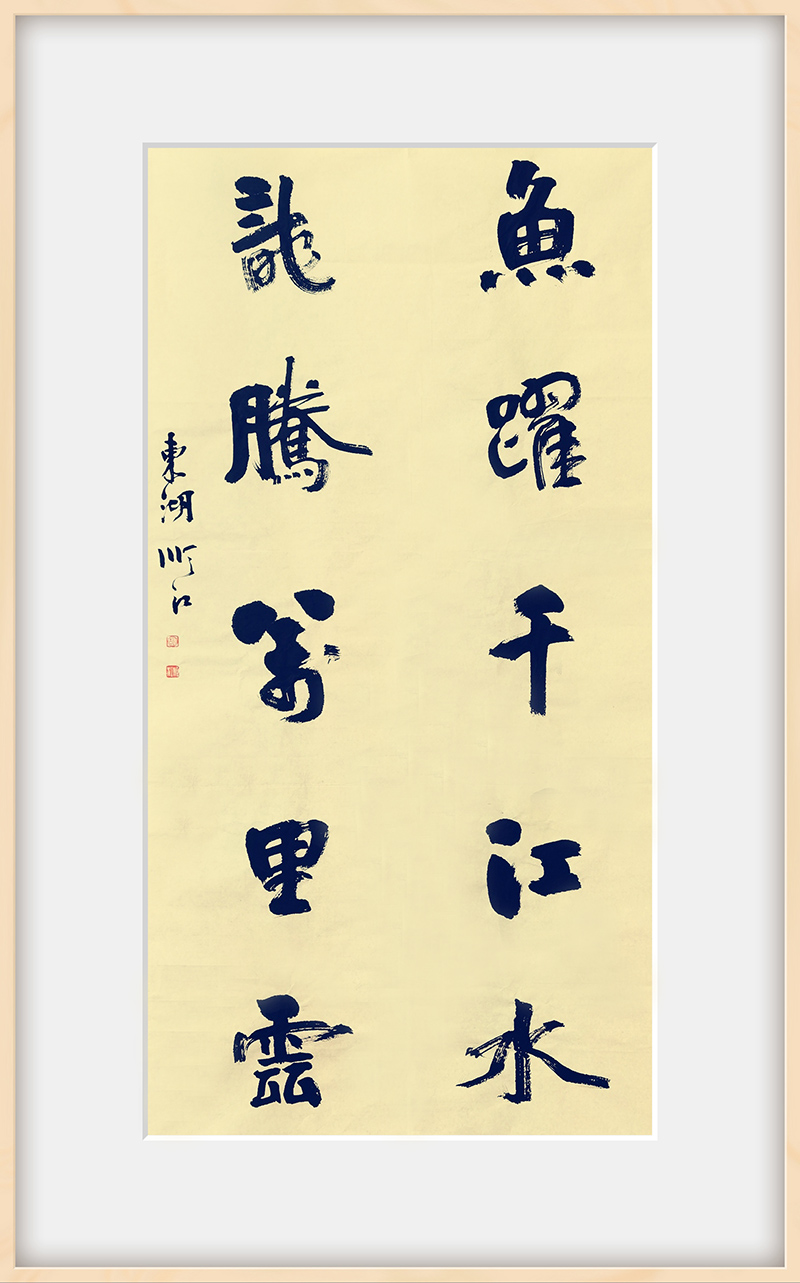 魚躍千江水
龍騰萬里雲
東湖順江